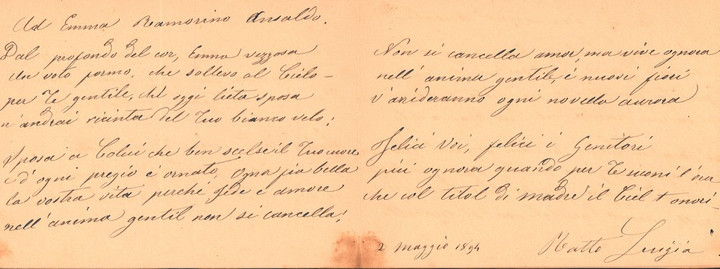 Ad Emma Ramorino Ansaldo.
Dal profondo del cor, Emma vezzosa
Un voto formo, che sollevo al Cielo
per Te gentile, che oggi lieta sposa
n'andrai ricinta del Tuo bianco velo!
Sposa a Colui che ben scelse il Tuo cuore
e d'ogni pregio è ornato, Ognor sia bella
la vostra vita perchè fede e amore
nell'anima gentil non si cancella!
Non si cancella amor ma vive ognora
nell'anima gentil, e nuovi fiori
v'anideranno ogni novella aurora
Felici Voi, felici i Genitori
più ognora quando per Te suoni l'ora
che col titol di madre il Ciel t'onori.
2 Maggio 1894
Ratto Luigia